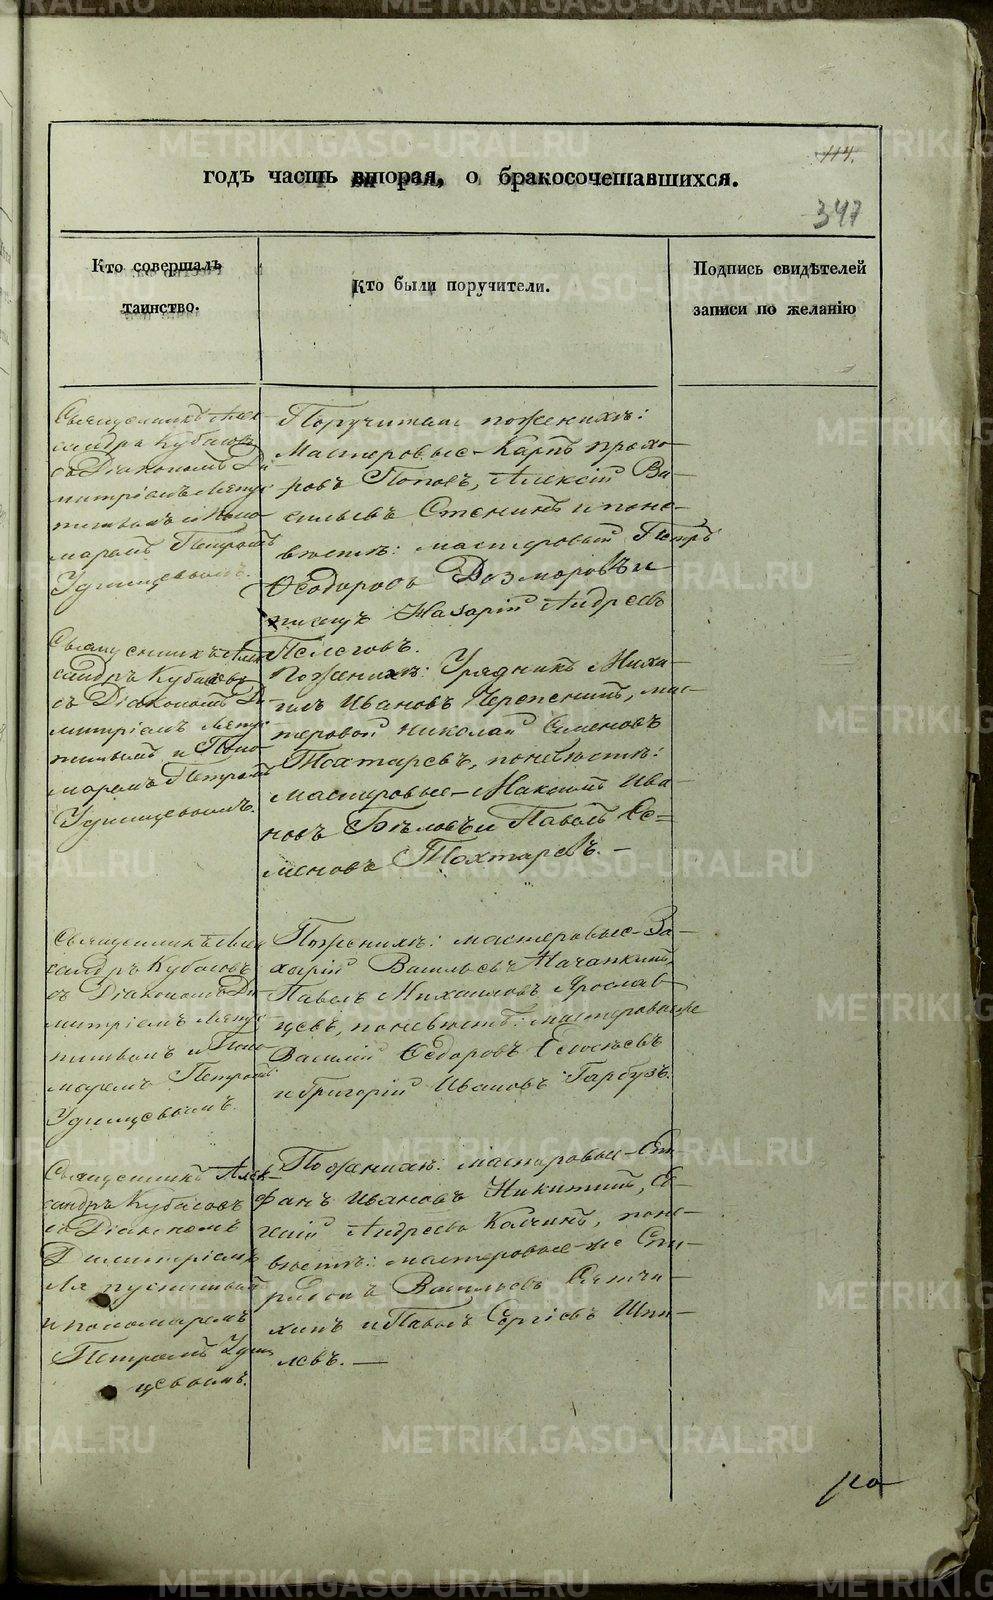 114.
годъ часть вторая, о бракосочетавшихся.
347
Кто совершалъ
таинство.
Кто были поручители.
Подпись свидѣтелей
записи по желанію
Священникъ Алек-
сандръ Кубасовъ
съ Діакономъ Ди
митріемъ
и Поно-
маремъ Петромъ
Удинцевымъ.
Поручители по женихѣ:
Мастеровые – Карпъ Прохо-
ровъ Поповъ, Алексій Ва-
сильевъ Стенинъ и по не-
вѣстѣ: мастеровый Петръ
Ѳеодоровъ Дозморовъ и
писецъ Назарій Андреевъ
Пелеговъ.
Священникъ Алек
сандръ Кубасовъ
съ Діакономъ Ди
митріемъ
и Поно
маремъ Петромъ
Удинцевымъ.
По женихѣ: Урядникъ Миха-
илъ Ивановъ Черепенинъ, мас-
теровой Николай Семеновъ
Тохтаревъ, по невѣстѣ:
мастеровые – Максимъ Ива-
новъ Бѣловъ и Павелъ Се-
меновъ Тохтаревъ. –
Священникъ Алек
сандръ Кубасовъ
съ Діакономъ Ди
митріемъ
и Поно
маремъ Петромъ
Удинцевымъ.
По женихѣ: мастеровые – За-
харій Васильевъ
Павелъ Михаиловъ Ярослав-
цевъ, по невѣстѣ: мастеровые же
Василій Ѳедоровъ Елосѣевъ
и Григорій Ивановъ Гарбузъ.
Священникъ Алек-
сандръ Кубасовъ
съ Діакономъ
Димитріемъ
Ляпустинымъ
и пономаремъ
Петромъ Удин
цевымъ.
По женихѣ: мастеровые – Сте
фанъ Ивановъ Никитинъ, Ев-
гений Андреевъ Калчинъ, по не-
вѣстѣ: мастеровые же Спи-
ридонъ Васильевъ
хинъ и Павелъ Сергіевъ Шпи-
левъ. —